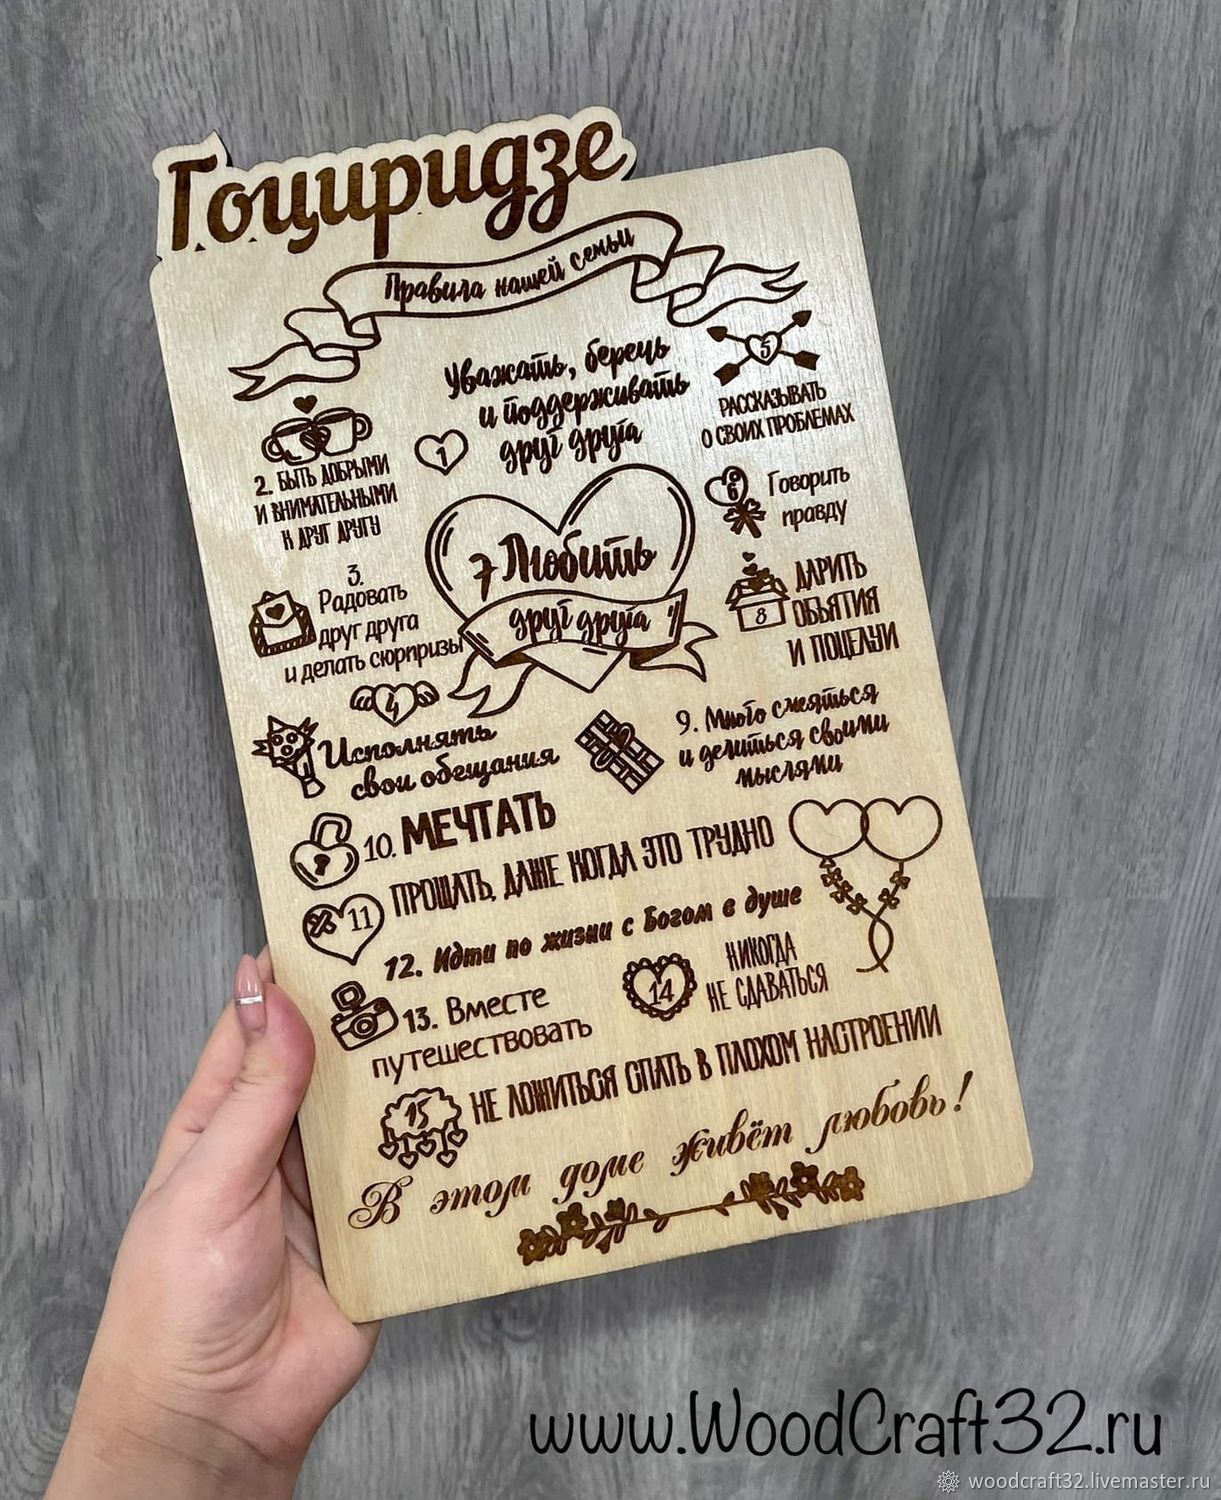 Гоциридзе
Правила нашей семьи
Уважать, беречь
и поддерживать
1 друг друга
2. БЫТЬ ДОБРЫМИ
И ВНИМАТЕЛЬНЫМИ
К ДРУГ ДРУГУ
3.
Радовать
друг друга
и делать сюрпризы
4
Исполнять
свои обещания
5
РАССКАЗЫВАТЬ
О СВОИХ ПРОБЛЕМАХ
6 Говорить
правду
7 Любить
друг друга
ДАРИТЬ
8 ОБЪЯТИЯ
И ПОЦЕЛУИ
9. Много смеяться
и делиться своими
мыслями
10. МЕЧТАТЬ
11 ПРОЩАТЬ, ДАЖЕ КОГДА ЭТО ТРУДНО
12. Идти по жизни с Богом в душе
13. Вместе
путешествовать
НИКОГДА
14 НЕ СДАВАТЬСЯ
15 НЕ ЛОЖИТЬСЯ СПАТЬ В ПЛОХОМ НАСТРОЕНИИ
В этом доме живёт любовь!
www.WoodCraft32.ru
woodcraft32.livemaster.ru